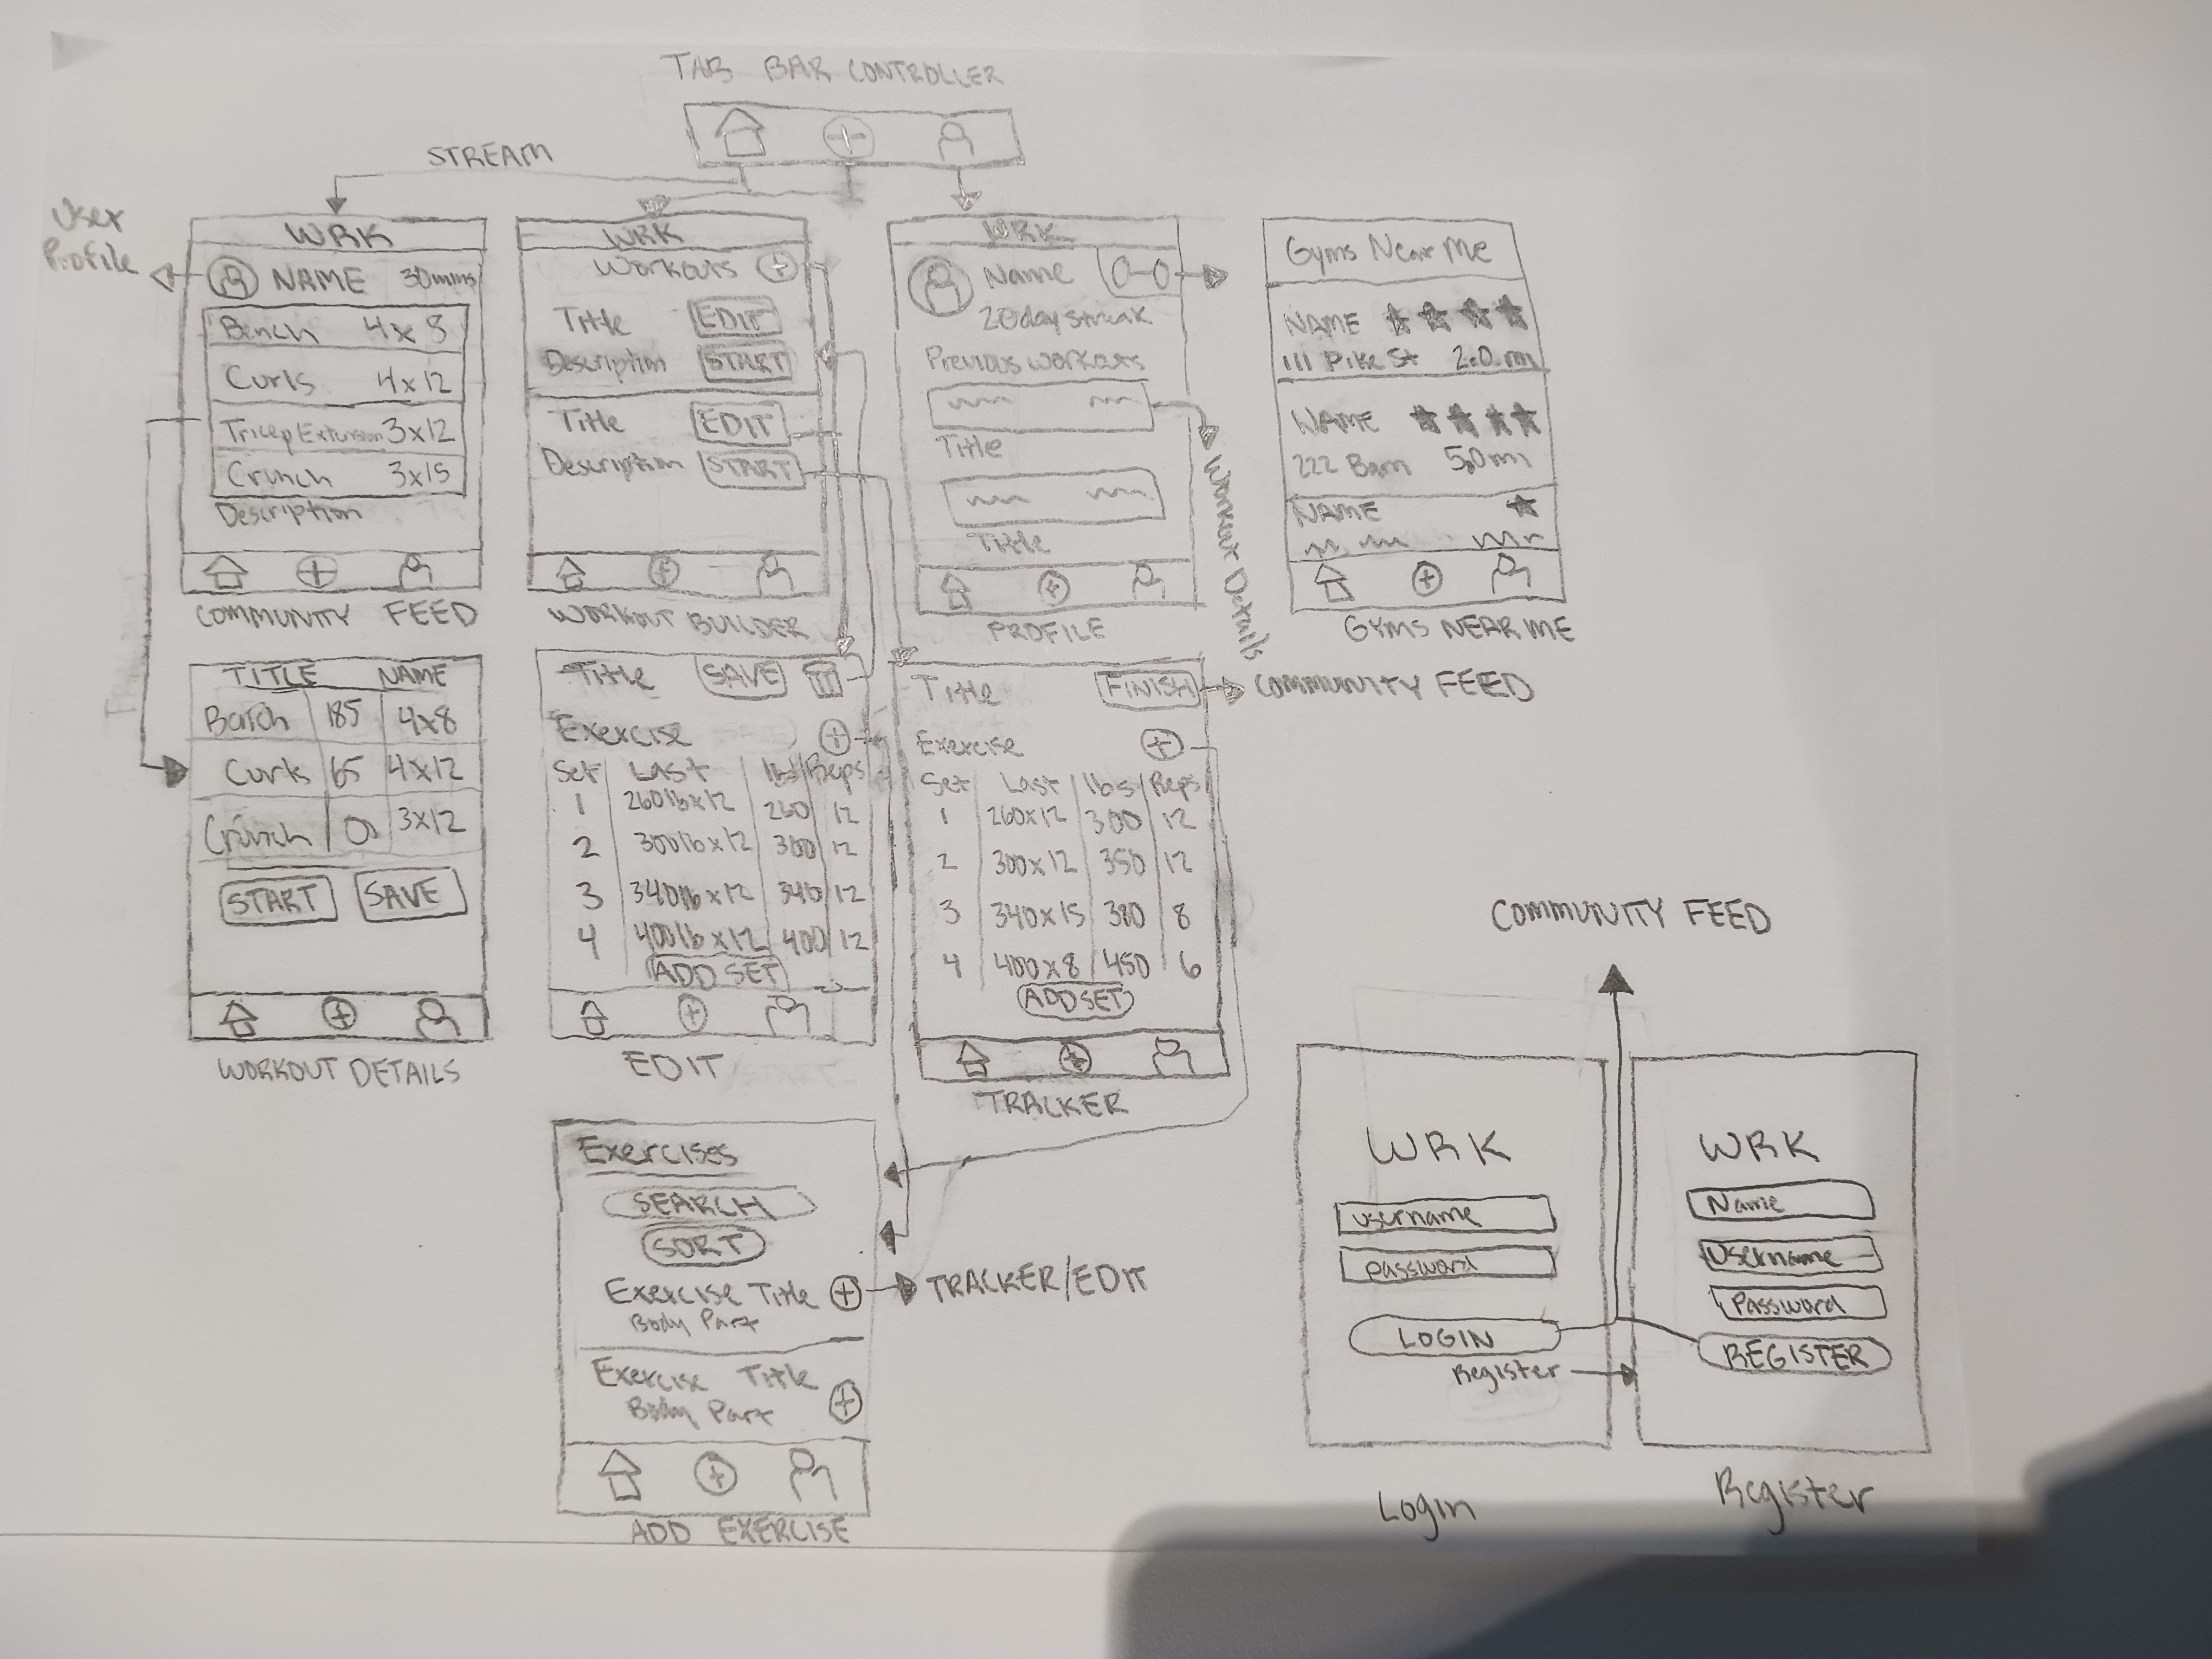 TAB BAR CONTROLLER
STREAM
User
Profile
WRK
NAME 30mins
Bench 4x
Curls 4x12
Tricep Extension 3x12
Crunch 3x15
Description
COMMUNITY FEED
WRK
Workouts
Title EDIT
Description START
Title EDIT
Description START
WORKOUT BUILDER
WRK
Name
20 day streak
Previous workouts
Title
Title
PROFILE
Workout Details
Gyms Near Me
NAME
111 Pike St 2.0 m
NAME
222 5.0 mi
NAME
GYMS NEAR ME
TITLE NAME
185 4x8
Curls 65 4x12
Crunch 3x12
START SAVE
WORKOUT DETAILS
Title SAVE
Exercise
Set Last lbs Reps
1 260lbx12 260 12
2 300lbx12 300 12
3 340lbx12 340 12
4 400lbx12 400 12
ADD SET
EDIT
Title FINISH
COMMUNITY FEED
Exercise
Set Last lbs Reps
1 260x12 300 12
2 300x12 350 12
3 340x15 380 8
4 400x8 450 6
ADD SET
TRACKER
Exercises
SEARCH
SORT
Exercise Title
Body Part
TRACKER/EDIT
Exercise Title
Body Part
ADD EXERCISE
COMMUNITY FEED
WRK
username
password
LOGIN
Register
Login
WRK
Name
Username
Password
REGISTER
Register